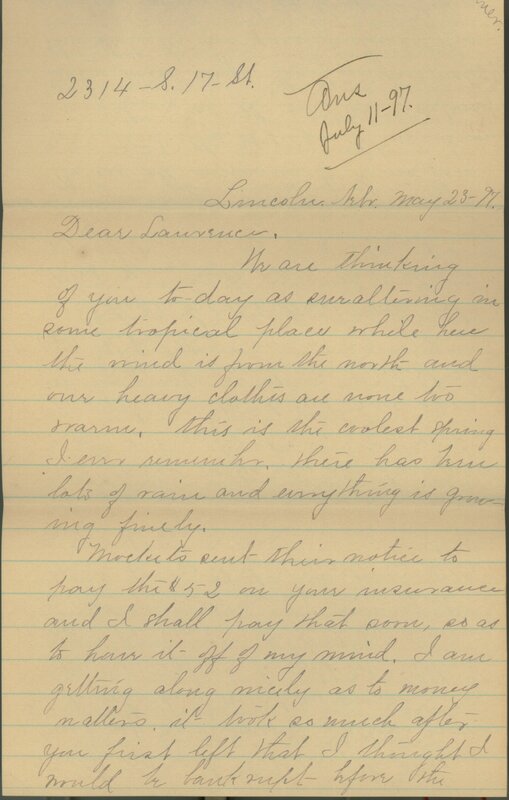 2314-S. 17-St.
Ans
July 11-97.
Lincoln Nbr. May 23-97.
Dear Lawrence,
We are thinking
of you to-day as sweltering in
some tropical place while here
the wind is from the north and
our heavy clothes are none too
warm. This is the coolest spring
I ever remember. There has been
lots of rain and everything is grow-
ing finely.
Mockets sent their notice to
pay the $52 on your insurance
and I shall pay that soon, so as
to have it off of my mind. I am
getting along nicely as to money
matters. it took so much after
you first left that I thought I
would be bankrupt before the